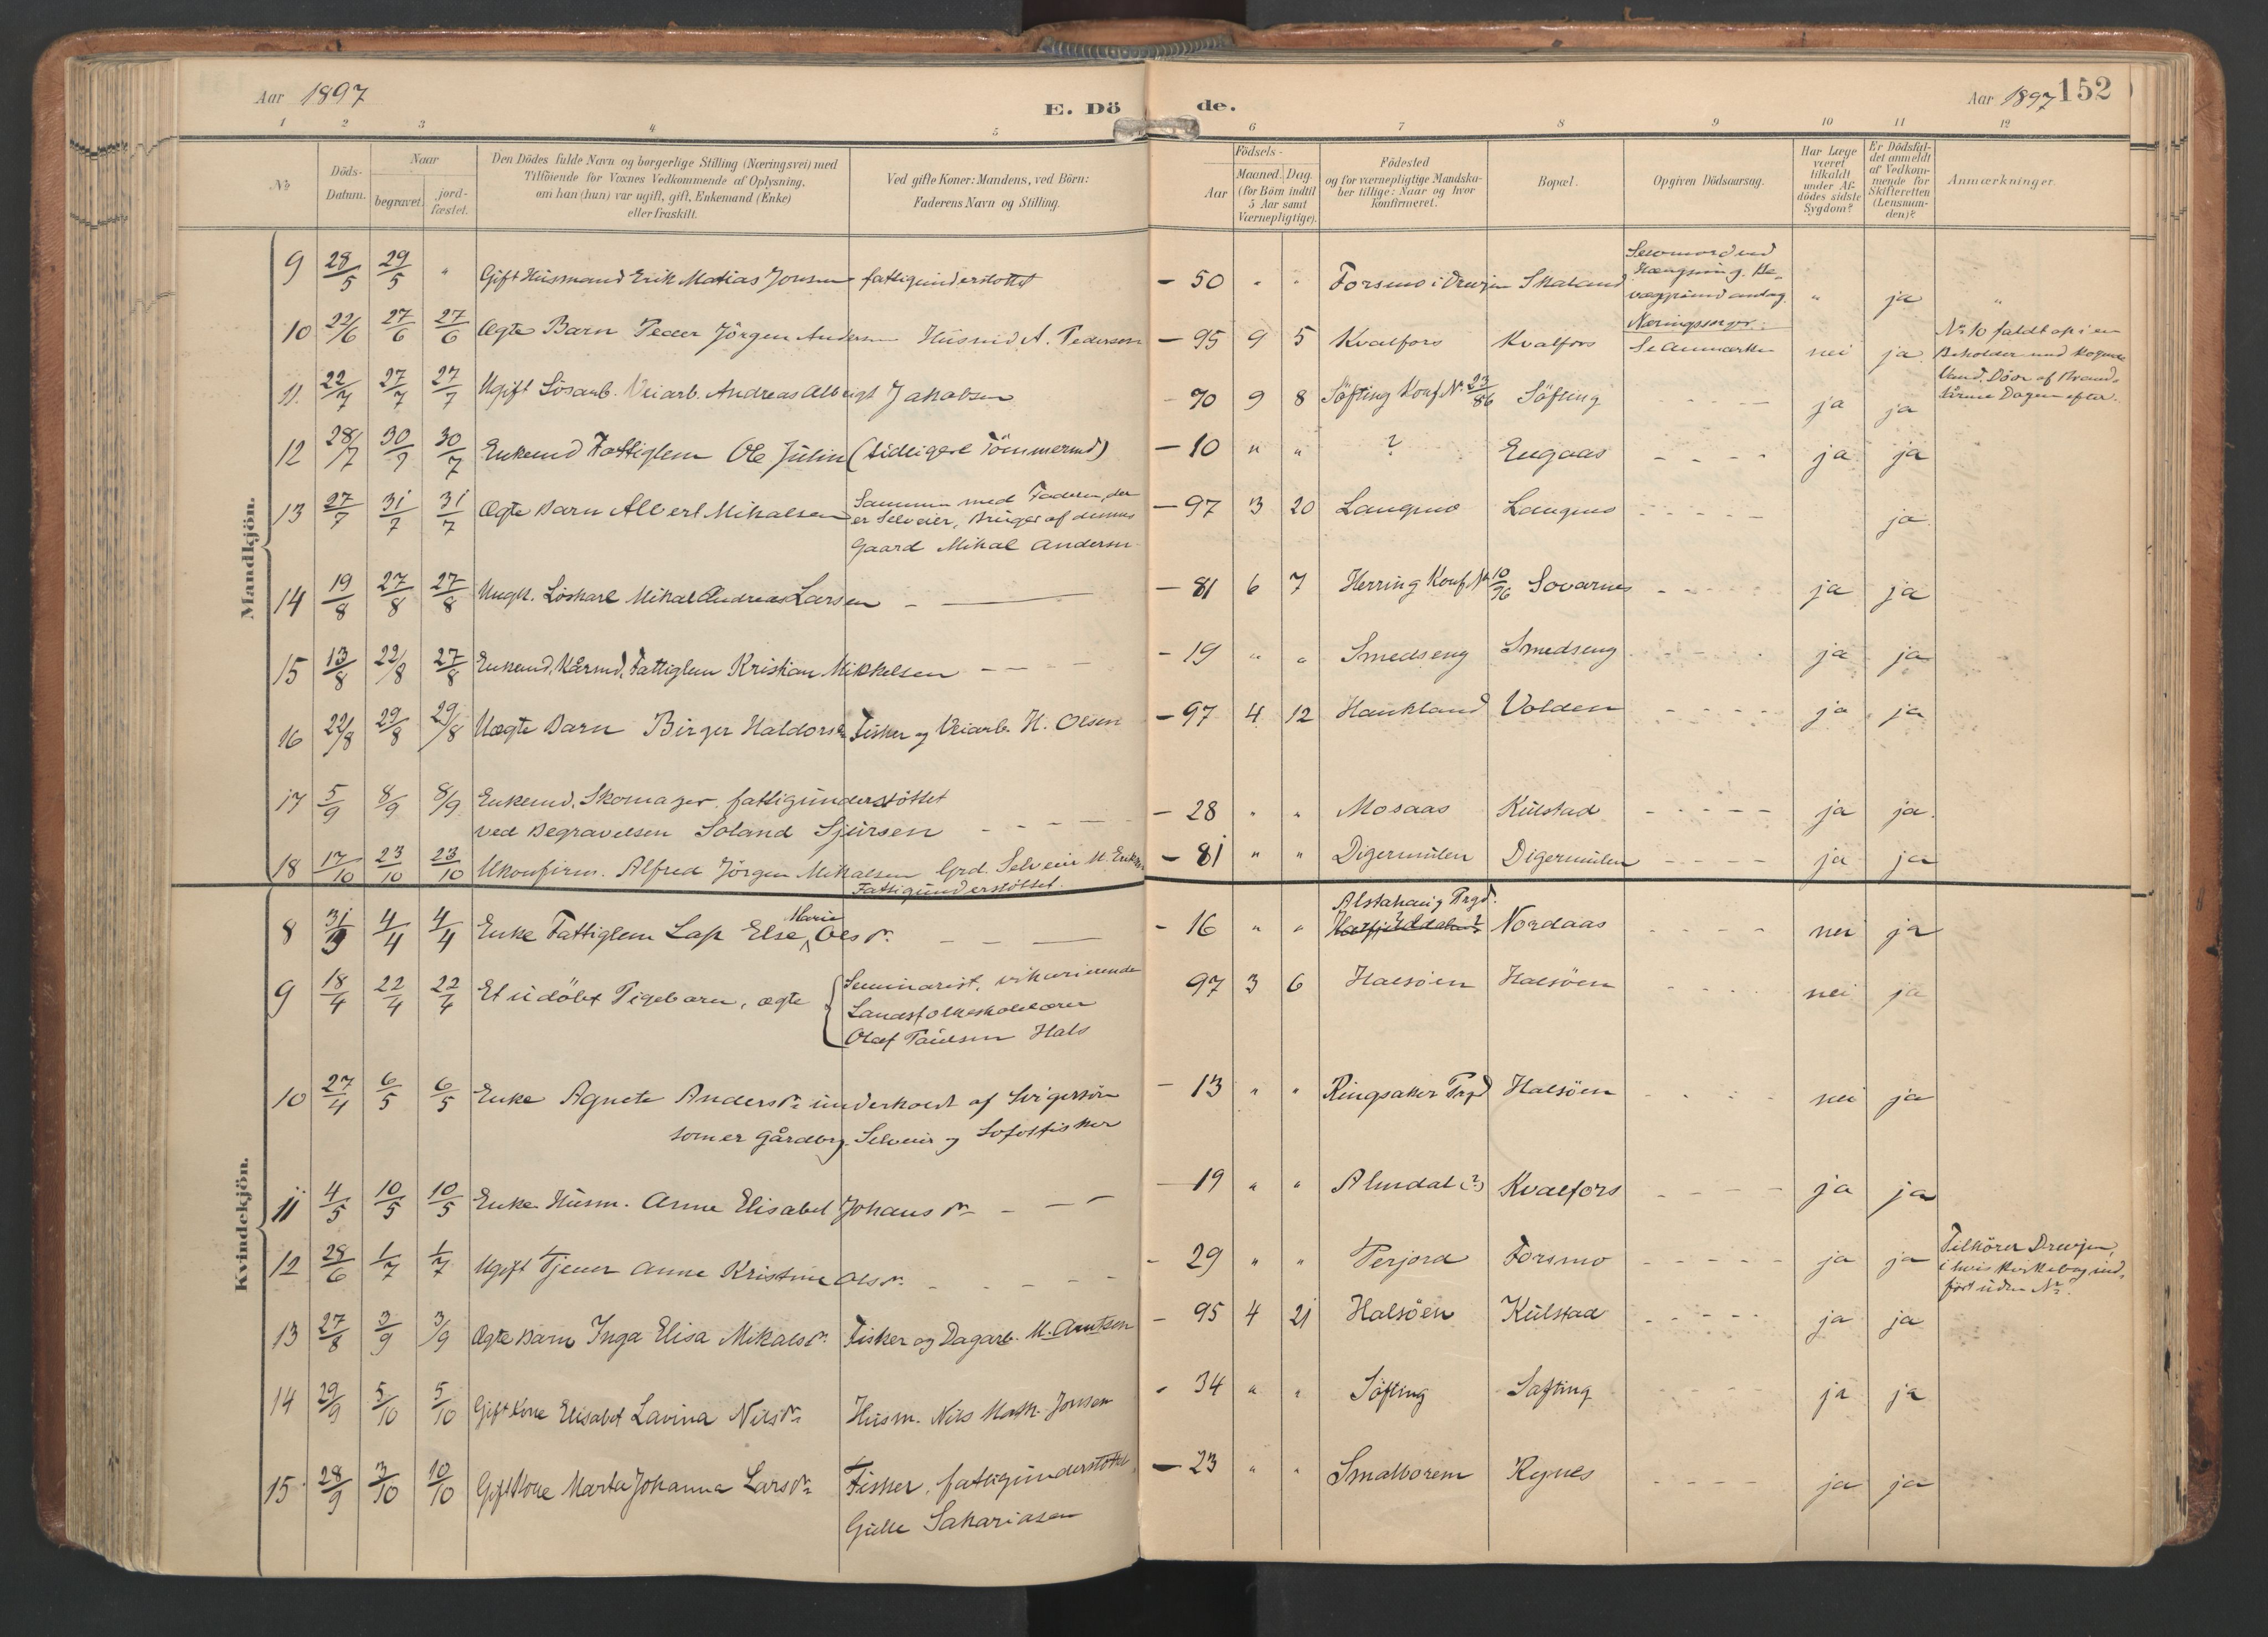 Aar 1897
E. Dö
de.
Aar 1897 152
1 2 3 4 5 6 7 8 9 10 11 12
No
Döds-
Datum.
Naar
begravet.
jord-
fæstet.
Den Dödes fulde Navn og borgerlige Stilling (Næringsvei) med
Tilföiende for Voxnes Vedkommende af Oplysning,
om han (hun) var ugift, gift, Enkemand (Enke)
eller fraskilt.
Ved gifte Koner: Mandens, ved Börn:
Faderens Navn og Stilling.
Födsels-
Aar
Maaned. Dag.
(for Börn indtil
5 Aar samt
Værnepligtige).
Födested
og for værnepligtige Mandska-
ber tillige: Naar og hvor
konfirmeret.
Bopæl.
Opgiven Dödsaarsag.
Har Læge
været
tilkaldt
under Af-
dödes sidste
Sygdom?
Er Dödsfal-
det anmeldt
af Vedkom-
mende for
Skifteretten
(Lensman-
den)?
Anmærkninger.
Mandkjön.
9 28/5 29/5 " Gift Husmand Erik Matias Jonsen fattigunderstöttet - 50 " " Forsmo i Drevjen Skaland Selvmord ved
Hængning. Be-
væggrund antag.
Næringssorger. " ja "
10 22/6 27/6 27/6 Ægte Barn Peder Jörgen Andersen Husmd A. Pedersen - 95 9 5 Kvalfors Kvalfors Se Anmærkn nei ja No 10 faldt op i en
Beholder med kogende
Vand. Döde af Brand-
sårene Dagen efter.
11 22/7 27/7 27/7 Ugift Lösarb. Veiarb. Andreas Albrigt Jakobsen - 70 9 8 Söfting Konf. No 23/86 Söfting - - - - ja ja
12 28/7 30/7 30/7 Enkemd Fattiglem Ole Julin (tidligere Tömmermd) - 10 " " ? Engaas - - - - ja ja
13 27/7 31/7 31/7 Ægte Barn Albert Mikalsen Sammen med Faderen, der
er Selveier, Bruger af dennes
Gaard Mikal Andersen - 97 3 20 Langmo Langmo - - - - ja
14 19/8 27/8 27/8 Ungk. Löskarl Mikal Andreas Larsen - 81 6 7 Herring Konf. No 10/96 Sovarnes - - - - ja ja
15 13/8 22/8 27/8 Enkemd, Kårmd, Fattiglem Kristian Mikkelsen - - - - 19 " " Smedseng Smedseng - - - ja ja
16 22/8 29/8 29/8 Uægte Barn Birger Haldorsen Fisker og Veiarb. H. Olsen - 97 4 12 Haukland Volden - - - - ja ja
17 5/9 8/9 8/9 Enkemd. Skomager. fattigunderstöttet
ved Begravelsen Soland Sjursen - - - - 28 " " Mosaas Kulstad - - - - ja ja
18 17/10 23/10 23/10 Ukonfirm. Alfred Jörgen Mikalsen Grd. Selveier M. Eriksen
Fattigunderstöttet. - 81 " " Digermulen Digermulen - - - - ja ja
Kvindekjön.
8 31/3 4/4 4/4 Enke Fattiglem Lap Else Marie Olsdr. - - - - 16 " " Alstahaug Prgd. Nordaas - - - - nei ja
9 18/4 22/4 22/4 Et udöbt Pigebarn, ægte Seminarist, vikarierende
Landsfolkeskolelærer
Olaf Paulsen Hals 97 3 6 Halsöen Halsöen - - - - nei ja
10 27/4 6/5 6/5 Enke Agnete Andersdr. underholdt af Svigersön
som er Gårdbrg. Selveier og Lofotfisker - 13 " " Ringsaker Prgd Halsöen - - - - nei ja
11 4/5 10/5 10/5 Enke Husm. Anne Elisabet Johansdr. - - - - 19 " " Almdal (?) Kvalfors - - - - ja ja
12 28/6 1/7 1/7 Ugift Tjener Anne Kristine Olsdr. - - - - 29 " " Perjord Forsmo - - - - ja ja Tilhörer Drevjen,
i hvis Kirkebog ind-
fört uden No.
13 27/8 3/9 3/9 Ægte Barn Inga Elisa Mikalsdr. Fisker og Dagarb. M. Arntsen - 95 4 21 Halsöen Kulstad - - - - ja ja
14 29/9 5/10 5/10 Gift Kone Elisabet Lavina Nilsdr. Husm. Nils Math. Jonsen - 34 " " Söfting Söfting - - - - ja ja
15 28/9 3/10 10/10 Gift Kone Marta Johanna Larsdr. Fisker, fattigunderstöttet,
Gulle Sakariasen - 23 " " Smalborem Rynes - - - ja ja